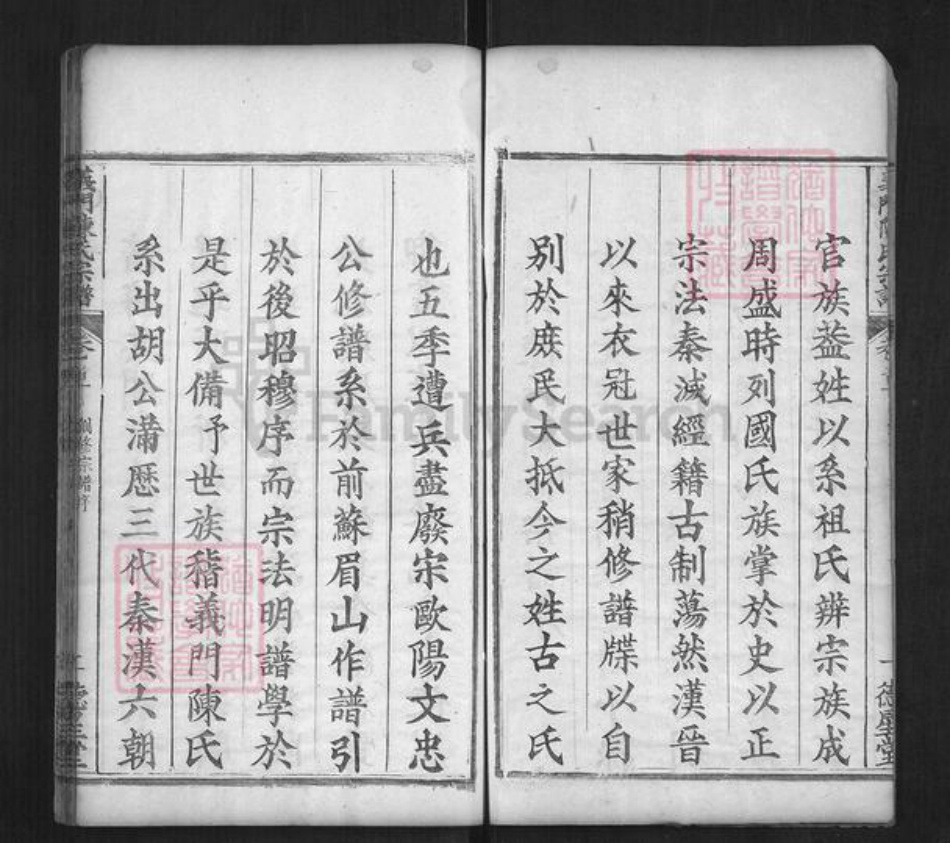 官族葢姓以系祖氏辨宗族成
周盛時列國氏族掌於史以正
宗法秦滅經籍古制蕩然漢晉
以來衣冠世家稍修譜牒以自
別於庶民大抵今之姓古之氏
也五季遭兵盡廢宋歐陽文忠
公修譜系於前蘇眉山作譜引
於後昭穆序而宗法明譜學於
是乎大備予世族稽義門陳氏
系出胡公滿歷三代秦漢六朝
義門陳氏宗譜
FamilySearch